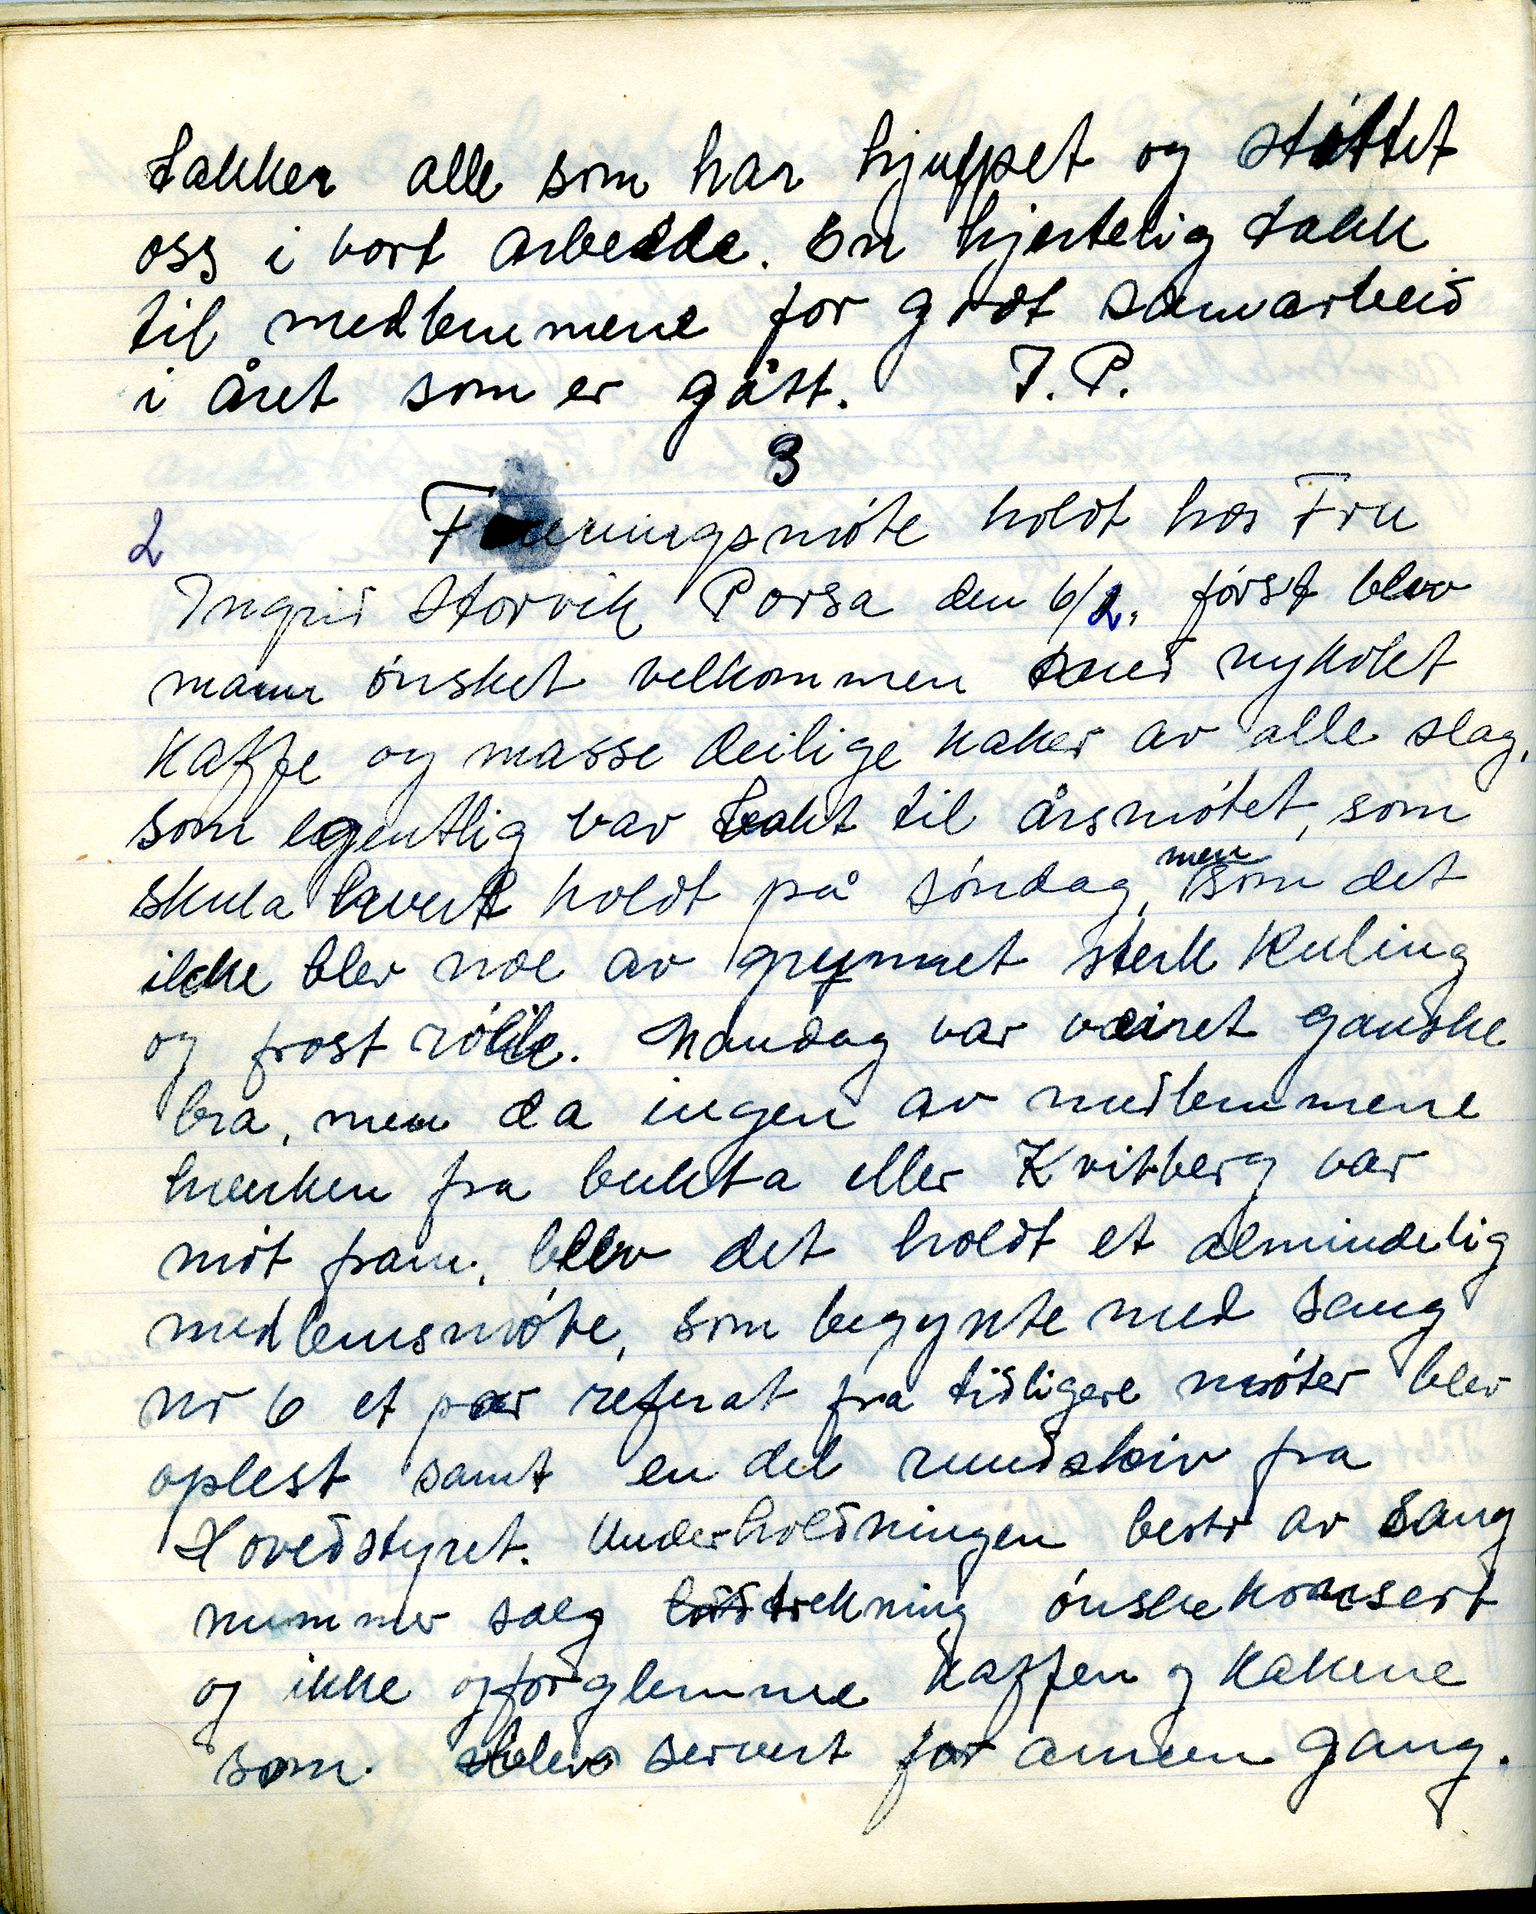 takker alle som har hjulpet og støttet
oss i vort arbeide. En hjertelig takk
til medlemmene for godt samarbeid
i året som er gått. I. P.
3
2 Foreningsmøte holdt hos Fru
Ingrid Storvik Porsa den 6/2. først blev
mann ønsket velkommen med nykokt
Kaffe og masse deilige kaker av alle slag,
som egentlig var bakt til årsmøtet, som
skula havert holdt på søndag, men som det
ikke blev noe av grunnet sterk Kuling
og frost røkk. Mandag var været ganske
bra, men da ingen av medlemmene
hverken fra bukta eller Kvitberg var
møt fram, blev det holdt et almindelig
medlemsmøte, som begynte med sang
nr 6 et par referat fra tidligere møter blev
oplest samt en del rundskriv fra
Hovedstyret. Underholdningen besto av Sang
nummer salg trekning ønskekonsert
og ikke og forglemme kaffen og kakene
som blev servert for annen gang.